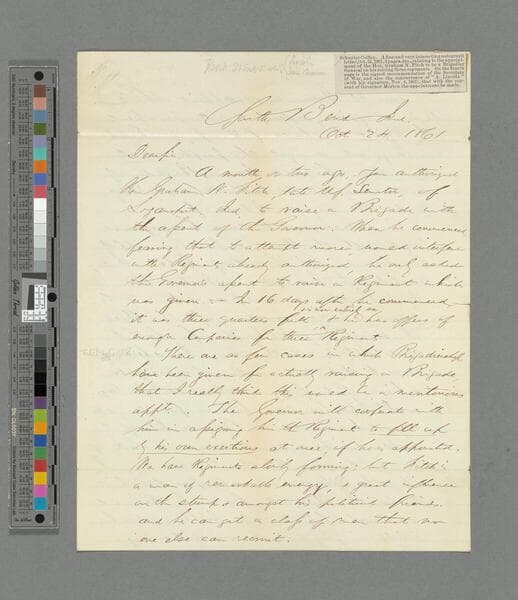 Schuyler Colfax. A fine and very interesting autograph
letter, Oct. 24, 1861, 4 pages, 8vo., relating to the appoint-
ment of the Hon. Graham N. Fitch to be a Brigadier
General on his raising three regiments. On the fourth
page is the signed recommendation of the Secretary
of War, and also the concurrence of "A. Lincoln"
(with his signature, Nov. 4, 1861), that with the con-
sent of Governor Morton the appointment be made.
South Bend Ind.
Oct 24 1861
Dear Sir
A month or two ago, you authorized
Graham N. Fitch, late U.S. Senator, of
Logansport Ind, to raise a Brigade with
the assent of the Governor. When he commenced
fearing that to attempt more would interfere
with Regiments already authorized he only asked
the Governor's assent to raise a Regiment which
was given. In 16 days after he commenced
it was three quarters full & he has offers of
is now entirely so
enough Companies for three Regiments
There are so few cases in which Brigadierships
have been given for actually raising a Brigade
that I really think this would be a meritorious
appt. The Governor will cooperate with
him in assigning him Regiments to fill up
by his own exertions at once, if he is appointed.
We have Regiments slowly forming; but Fitch is
a man of remarkable energy, & great influence
on the stump & amongst his political friends
and he can get a class of men that no
one else can recruit.